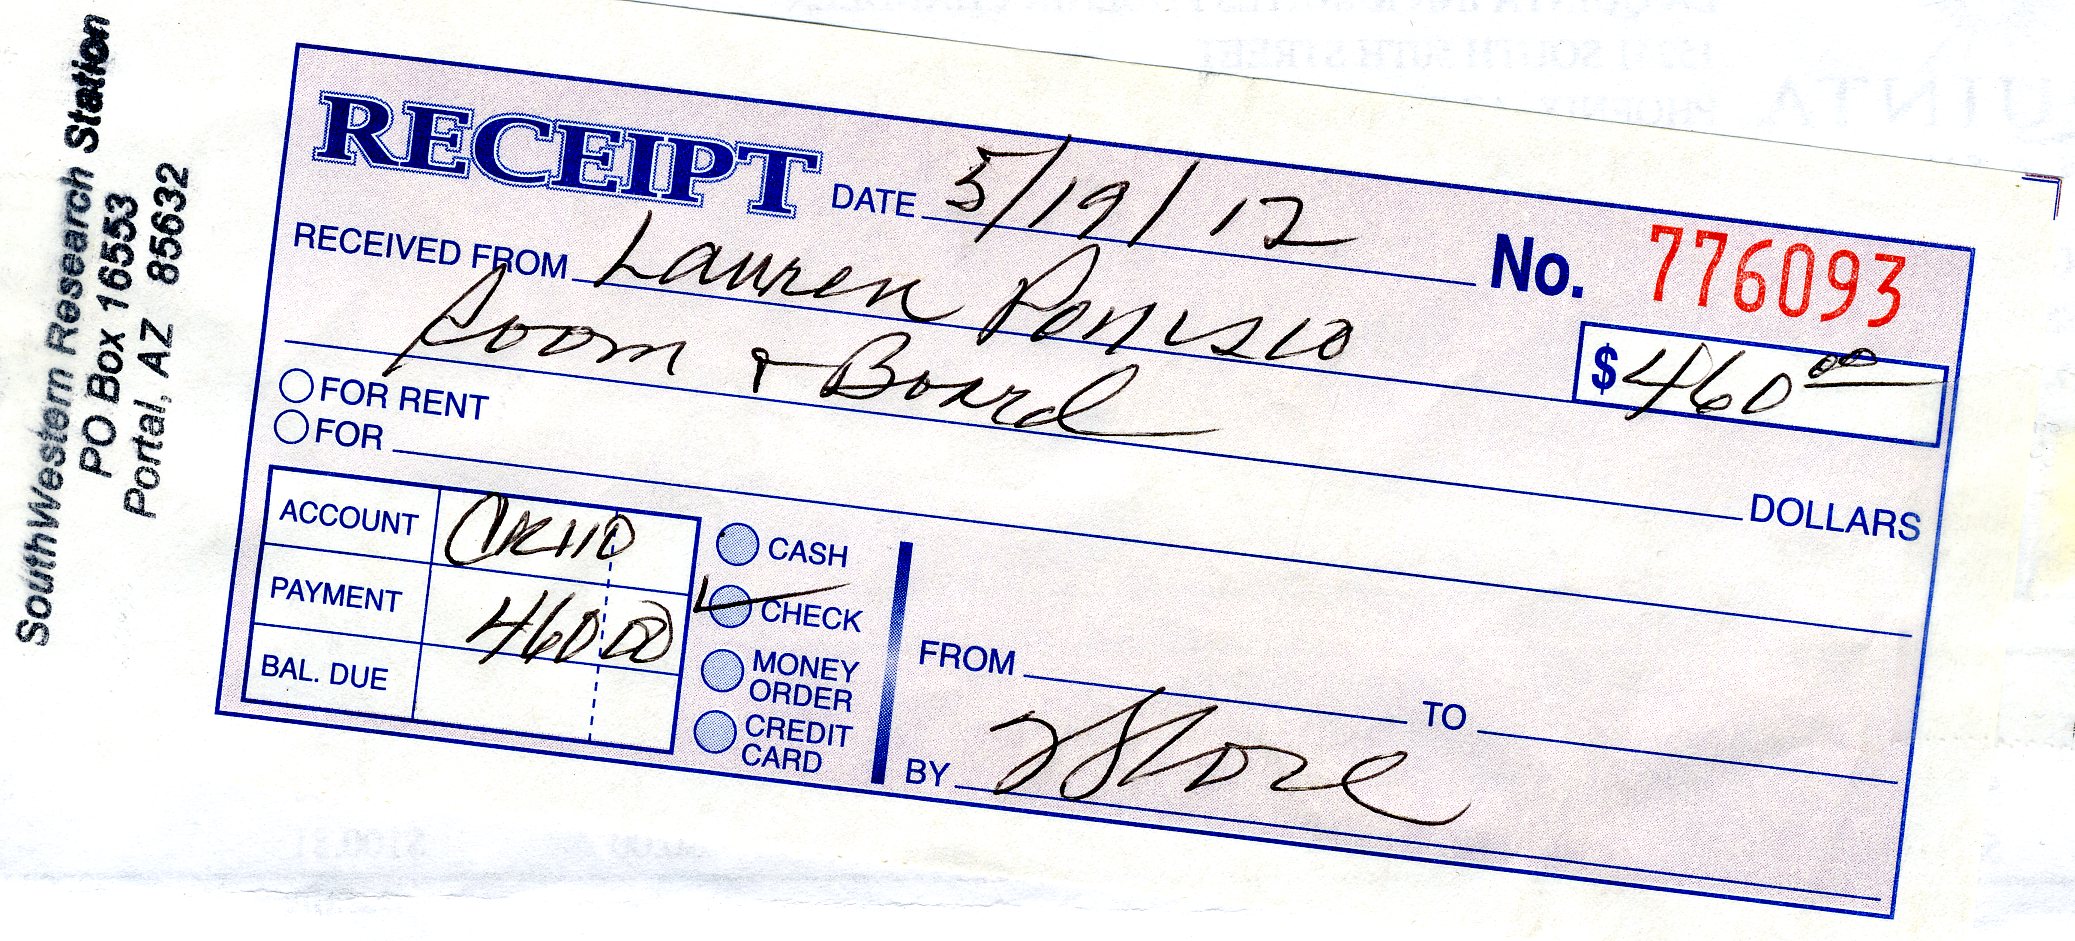 SouthWestern Research Station
PO Box 16553
Portal, AZ 85632
RECEIPT DATE 5/19/12 No. 776093
RECEIVED FROM Lauren Ponisio $460.00
Room + Board DOLLARS
FOR RENT
FOR
ACCOUNT CK110
PAYMENT 460 00
BAL. DUE
CASH
CHECK
MONEY ORDER
CREDIT CARD
FROM TO
BY